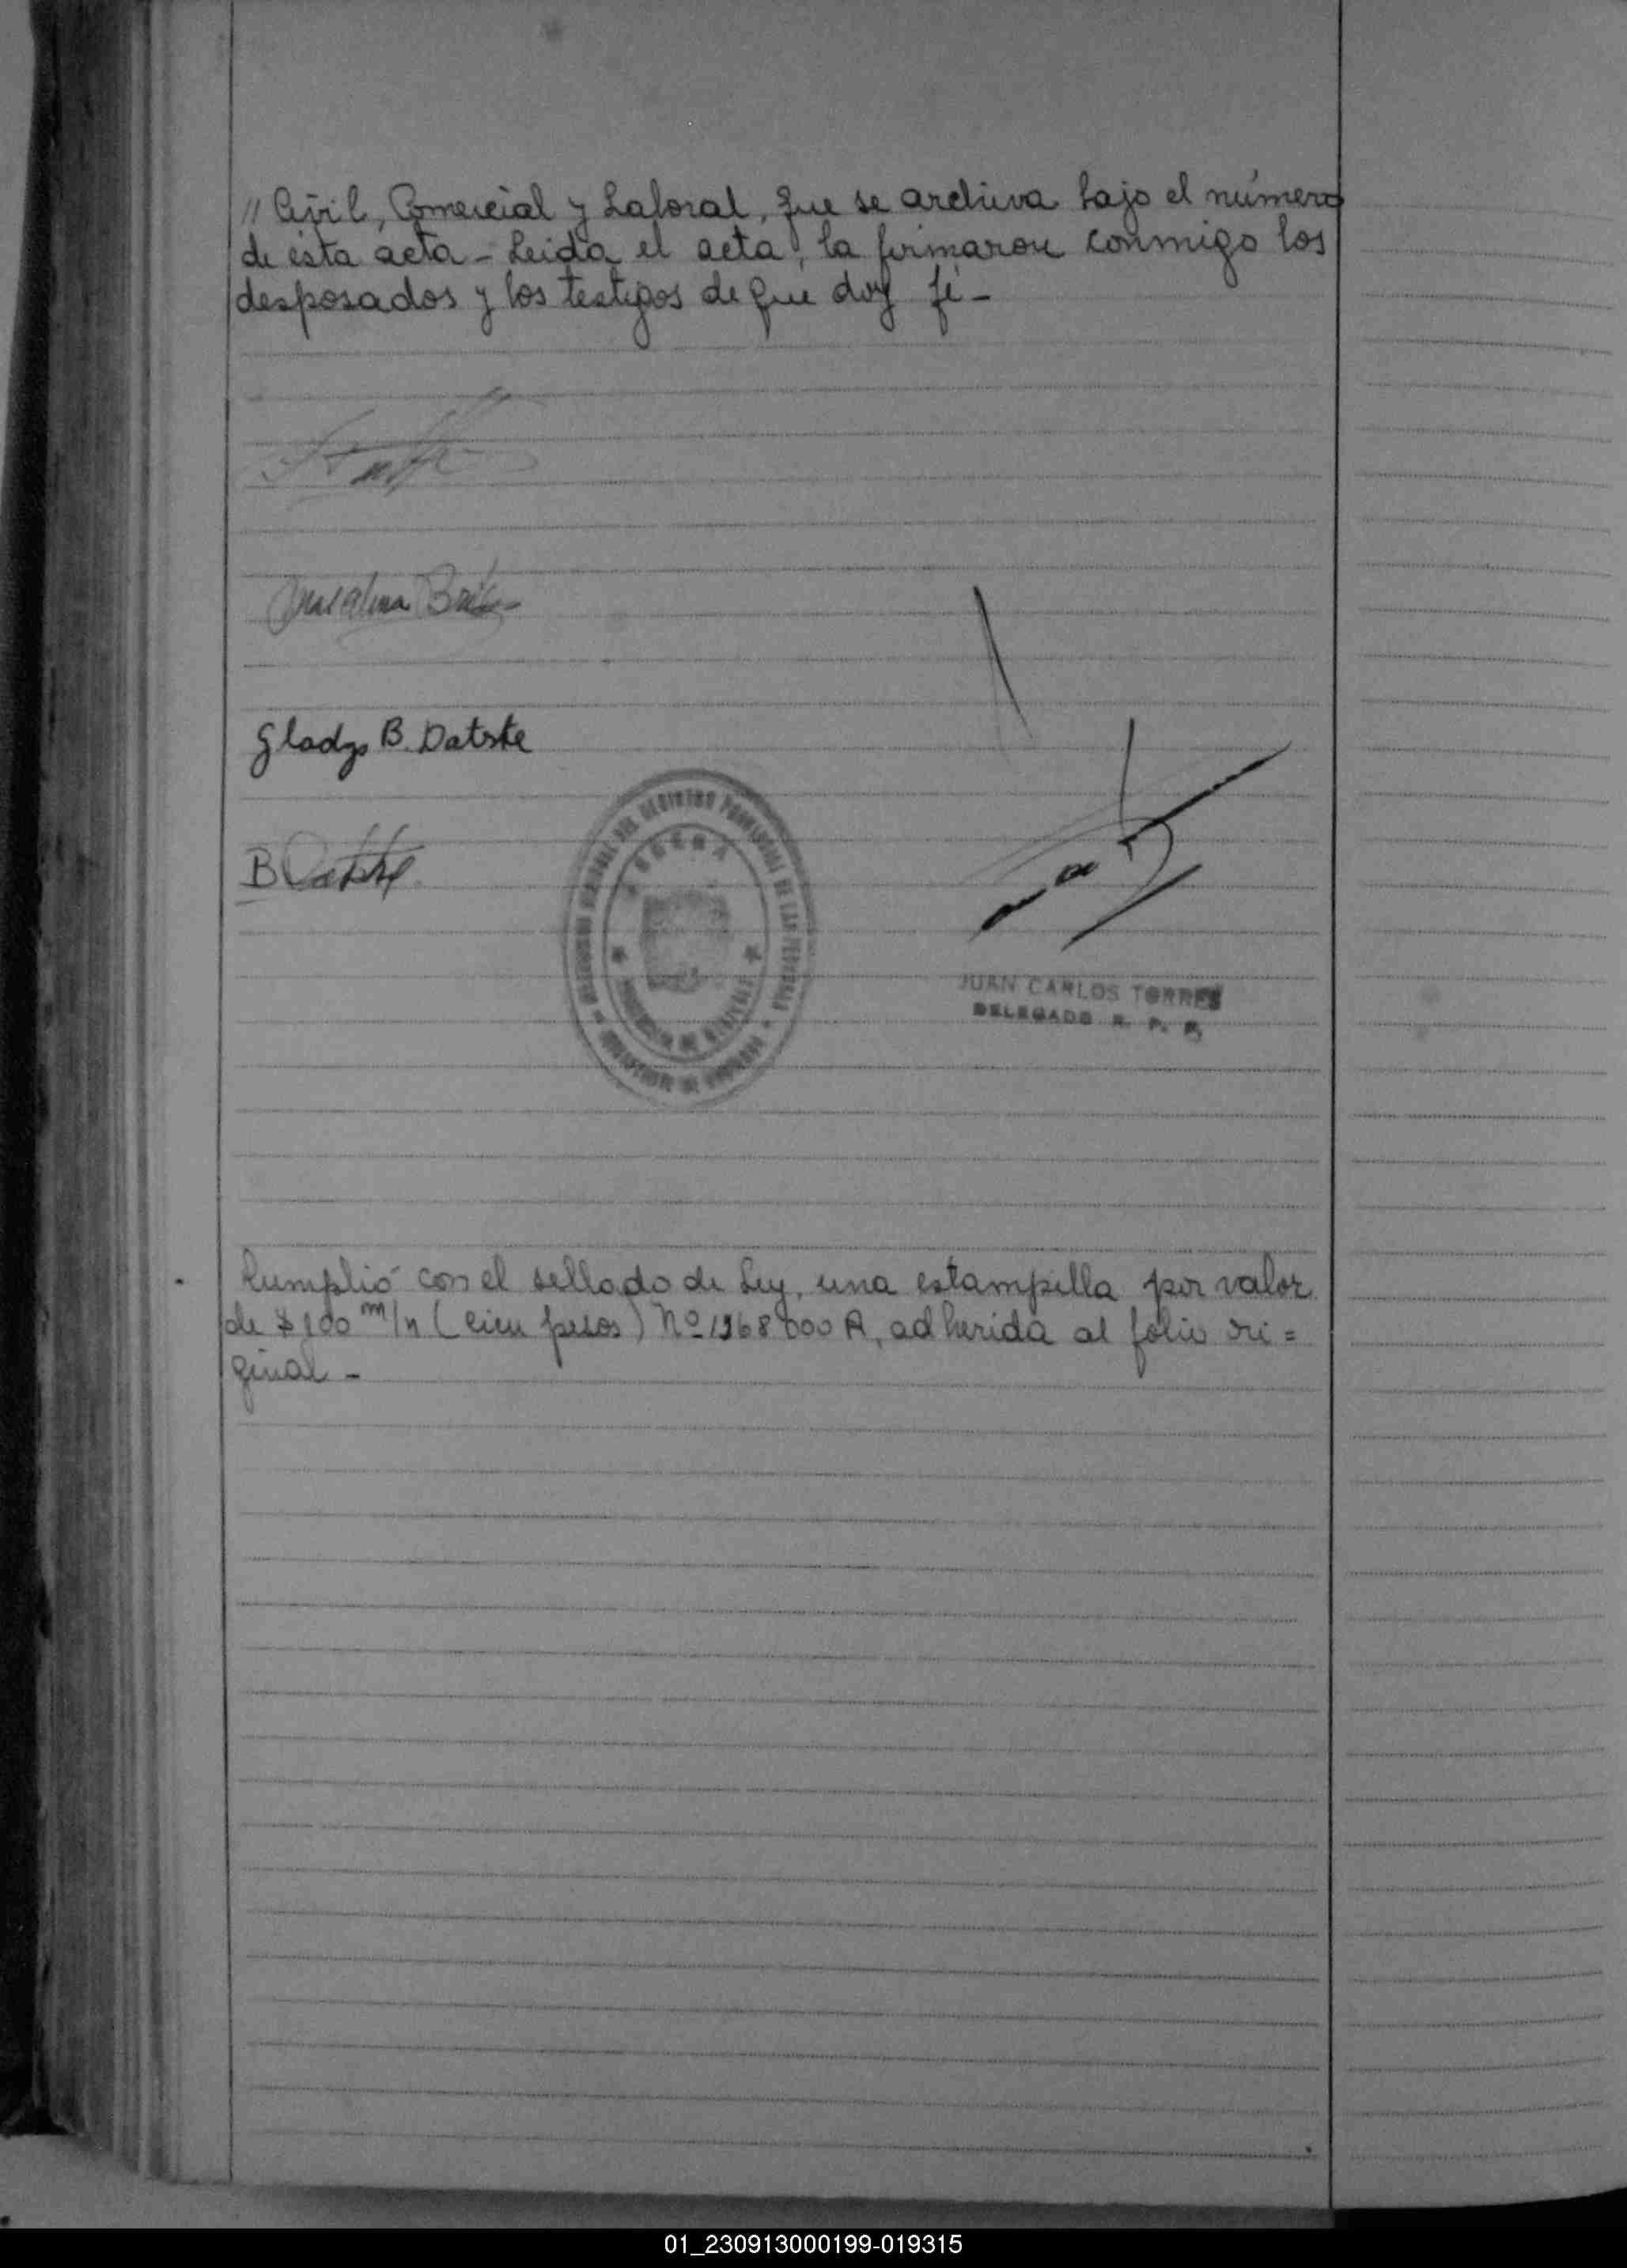 // Civil, Comercial y Laboral, que se archiva bajo el número
de ésta acta - Leida el acta, la firmaron conmigo los
desposados y los testigos de que doy fé -
Gladys B. Datske
B Datske
JUAN CARLOS TORRES
DELEGADO R. P. P.
Cumplió con el sellado de Ley, una estampilla por valor
de $ 100 m/n (cien pesos) Nº 1368000 A, adherida al folio ori=
ginal -
01_230913000199-019315